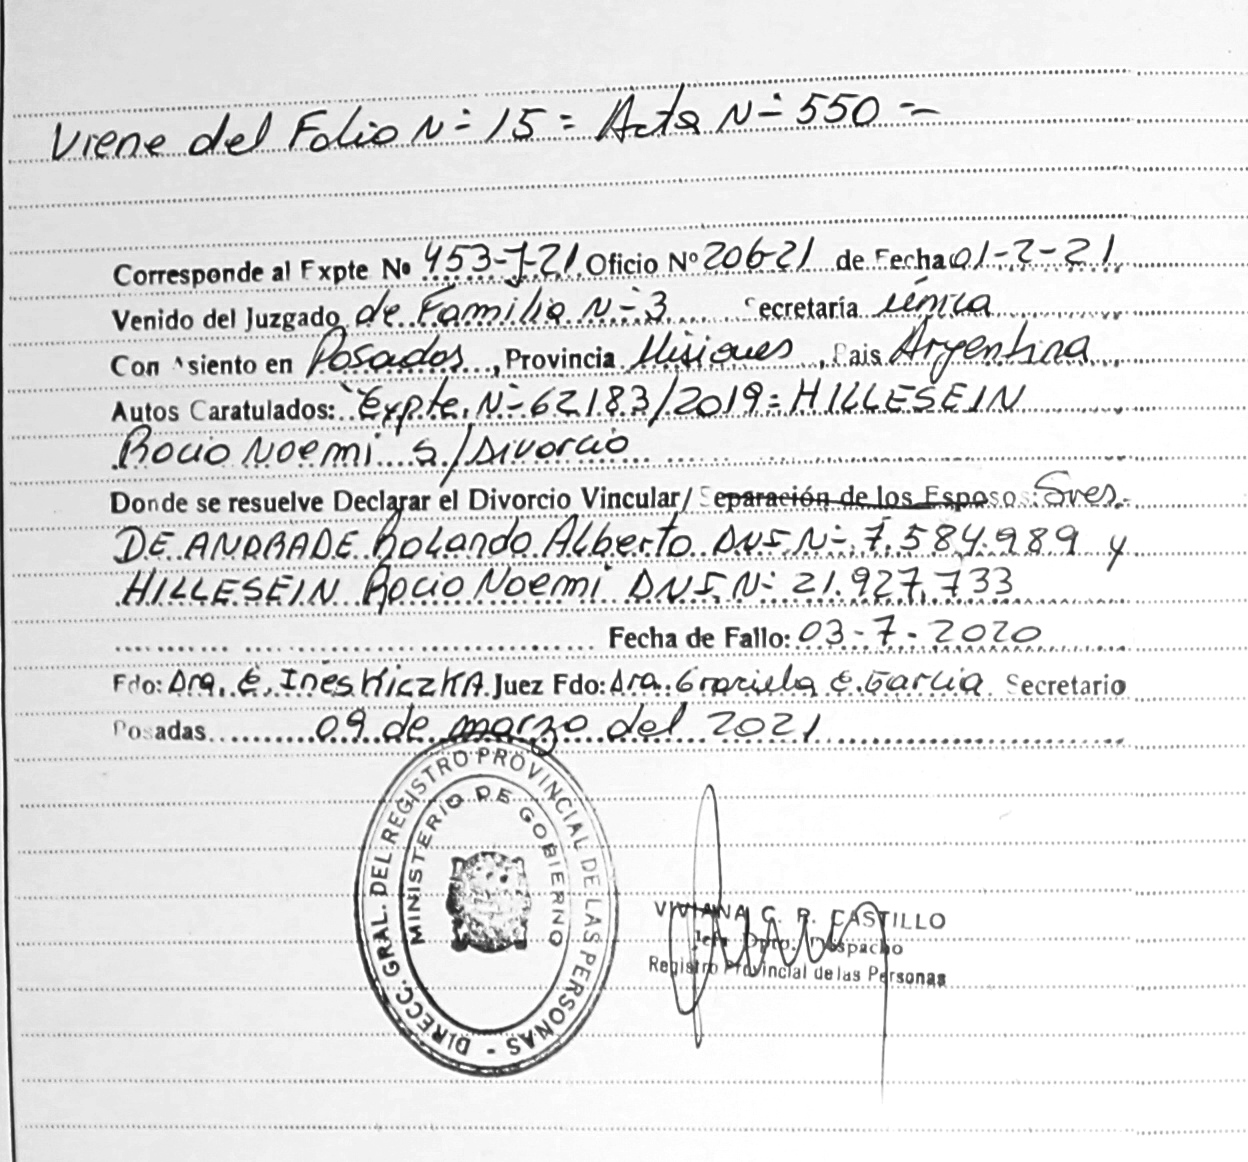 Viene del Folio N° 15 = Acta N° 550 =
Corresponde al Expte Nº 453-J-21 Oficio Nº 206-21 de Fecha 01-2-21
Venido del Juzgado de Familia N° 3 Secretaría única
Con Asiento en Posadas, Provincia Misiones, Pais Argentina
Autos Caratulados: "Expte. N° 62183/2019 = HILLESEIN
Rocio Noemi s/Divorcio
Donde se resuelve Declarar el Divorcio Vincular/ Separación de los Esposos: Sres.
DE ANDRADE Rolando Alberto DNI. N° 7.584.989 y
HILLESEIN Rocio Noemi DNI. N° 21.927.733
Fecha de Fallo: 03-7-2020
Fdo: Dra. E. Ines Kiczka Juez Fdo: Dra. Graciela E. Garcia Secretario
Posadas 09 de marzo del 2021
DIRECC. GRAL. DEL REGISTRO PROVINCIAL DE LAS PERSONAS -
MINISTERIO DE GOBIERNO
VIVIANA C. R. CASTILLO
Jefa Dpto. Despacho
Registro Provincial de las Personas